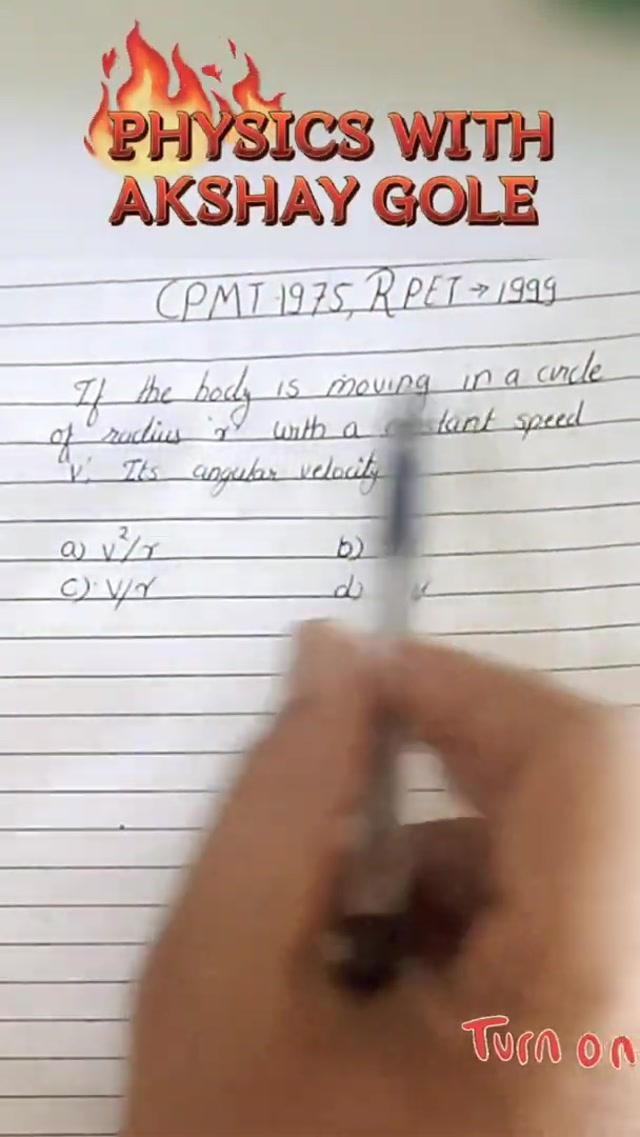 PHYSICS WITH
AKSHAY GOLE
CPMT 1975, RPET → 1999
If the body is moving in a circle
of radius 'r' with a speed
'v'. Its angular velocity
a) v²/r b)
c) v/r d)
Turn on